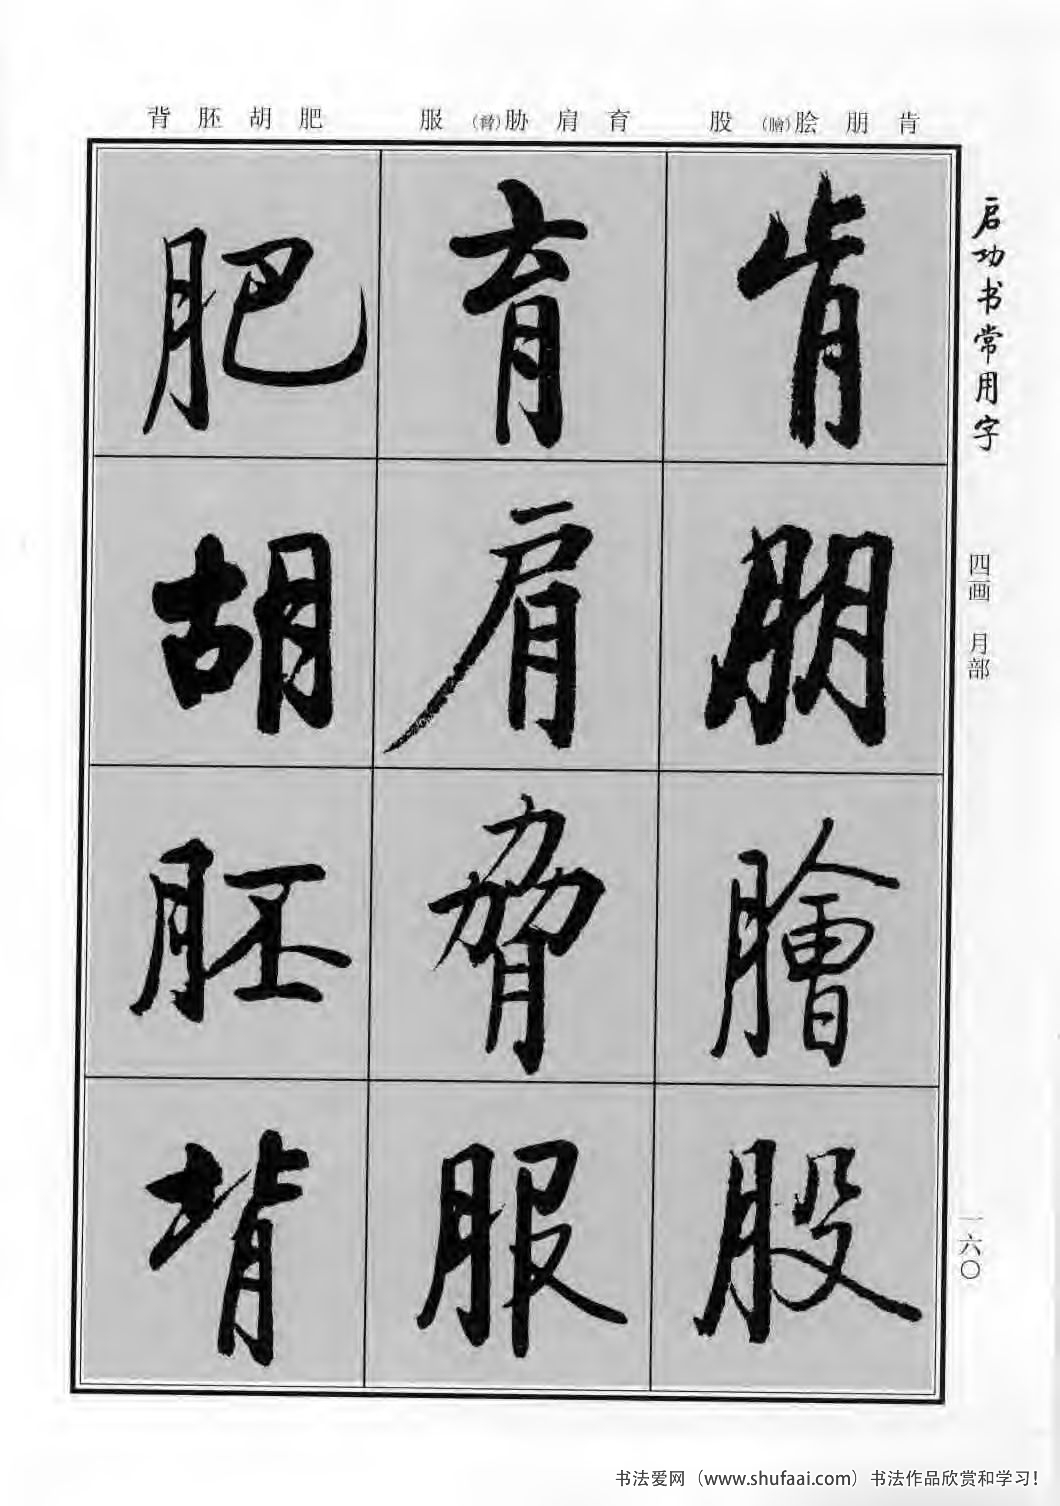 肯朋脍(膾)股
育肩胁(脅)服
肥胡胚背
启功书常用字
四画 月部
一六〇
肯
朋
膾
股
育
肩
脅
服
肥
胡
胚
背
书法爱网（www.shufaai.com）书法作品欣赏和学习！